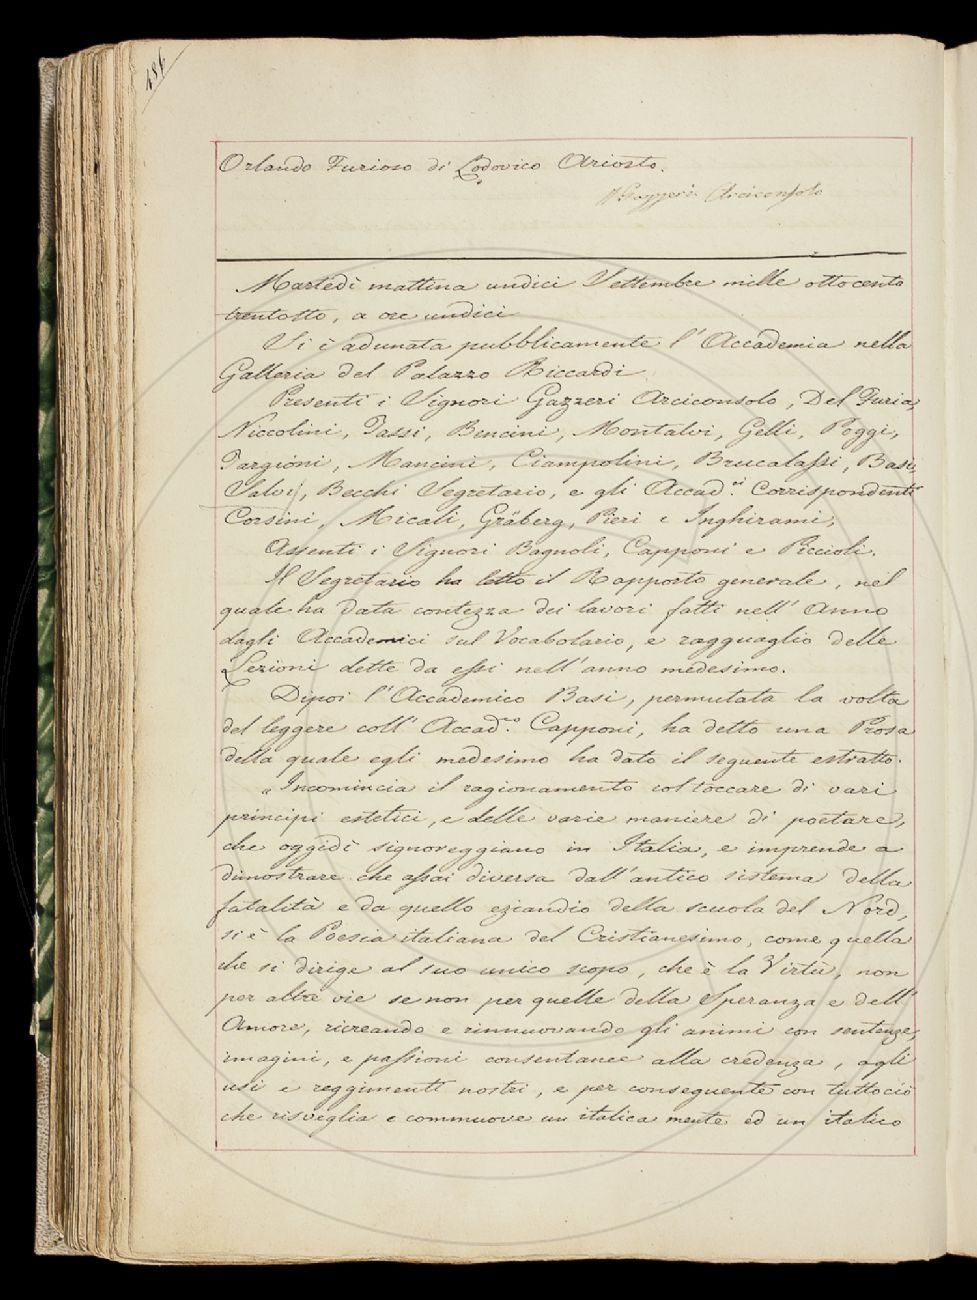 486
Orlando Furioso di Lodovico Ariosto.
Gazzeri Arciconsolo
Martedì mattina undici Settembre mille ottocento
trentotto, a ore undici
Si è adunata pubblicamente l'Accademia nella
Galleria del Palazzo Riccardi
Presenti i Signori Gazzeri Arciconsolo, Del Furia,
Niccolini, Tassi, Bencini, Montalvi, Gelli, Poggi,
Targioni, Mancini, Ciampolini, Brucalassi, Basi,
Salvi, Becchi Segretario, e gli Accad.ci Corrispondenti
Corsini, Micali, Gräberg, Pieri e Inghirami,
Assenti i Signori Bagnoli, Capponi e Piccioli.
Il Segretario ha letto il Rapporto generale, nel
quale ha data contezza dei lavori fatti nell'Anno
dagli Accademici sul Vocabolario, e ragguaglio delle
Lezioni dette da essi nell'anno medesimo.
Dipoi l'Accademico Basi, permutata la volta
del leggere coll'Accad.co Capponi, ha detto una Prosa
della quale egli medesimo ha dato il seguente estratto.
"Incomincia il ragionamento col toccare di vari
principi estetici, e delle varie maniere di poetare,
che oggidì signoreggiano in Italia, e imprende a
dimostrare che assai diversa dall'antico sistema della
fatalità e da quello eziandio della scuola del Nord,
si è la Poesia italiana del Cristianesimo, come quella
che si dirige al suo unico scopo, che è la Virtù, non
per altre vie se non per quelle della Speranza e dell'
Amore, ricreando e rinnuovando gli animi con sentenze,
imagini, e passioni consentanee alla credenza, agli
usi e reggimenti nostri, e per conseguente con tuttociò
che risveglia e commuove un italica mente ed un italico